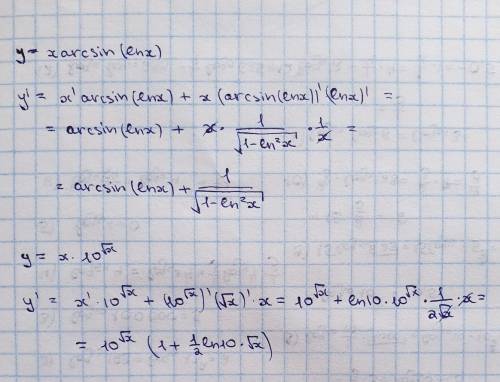 y = x arcsin(lnx)
y' = x' arcsin(lnx) + x (arcsin(lnx))' (lnx)' =
= arcsin(lnx) + x · 1/√(1-ln²x) · 1/x =
= arcsin(lnx) + 1/√(1-ln²x)
y = x · 10^√x
y' = x' · 10^√x + (10^√x)' (√x)' · x = 10^√x + ln10 · 10^√x · 1/(2√x) · x =
= 10^√x (1 + 1/2 ln10 · √x)